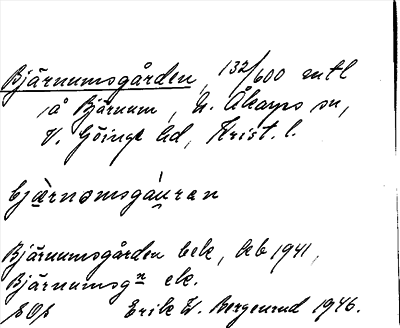 Bjärnumsgården, 132/600 mtl
å Bjärnum, N. Åkarps sn,
V. Göinge hd, Krist. l.
bjärnomsgáuran
Bjärnumsgården bek, kb 1941,
Bjärnumsgn ek.
Erik W. Bergenrud 1946.